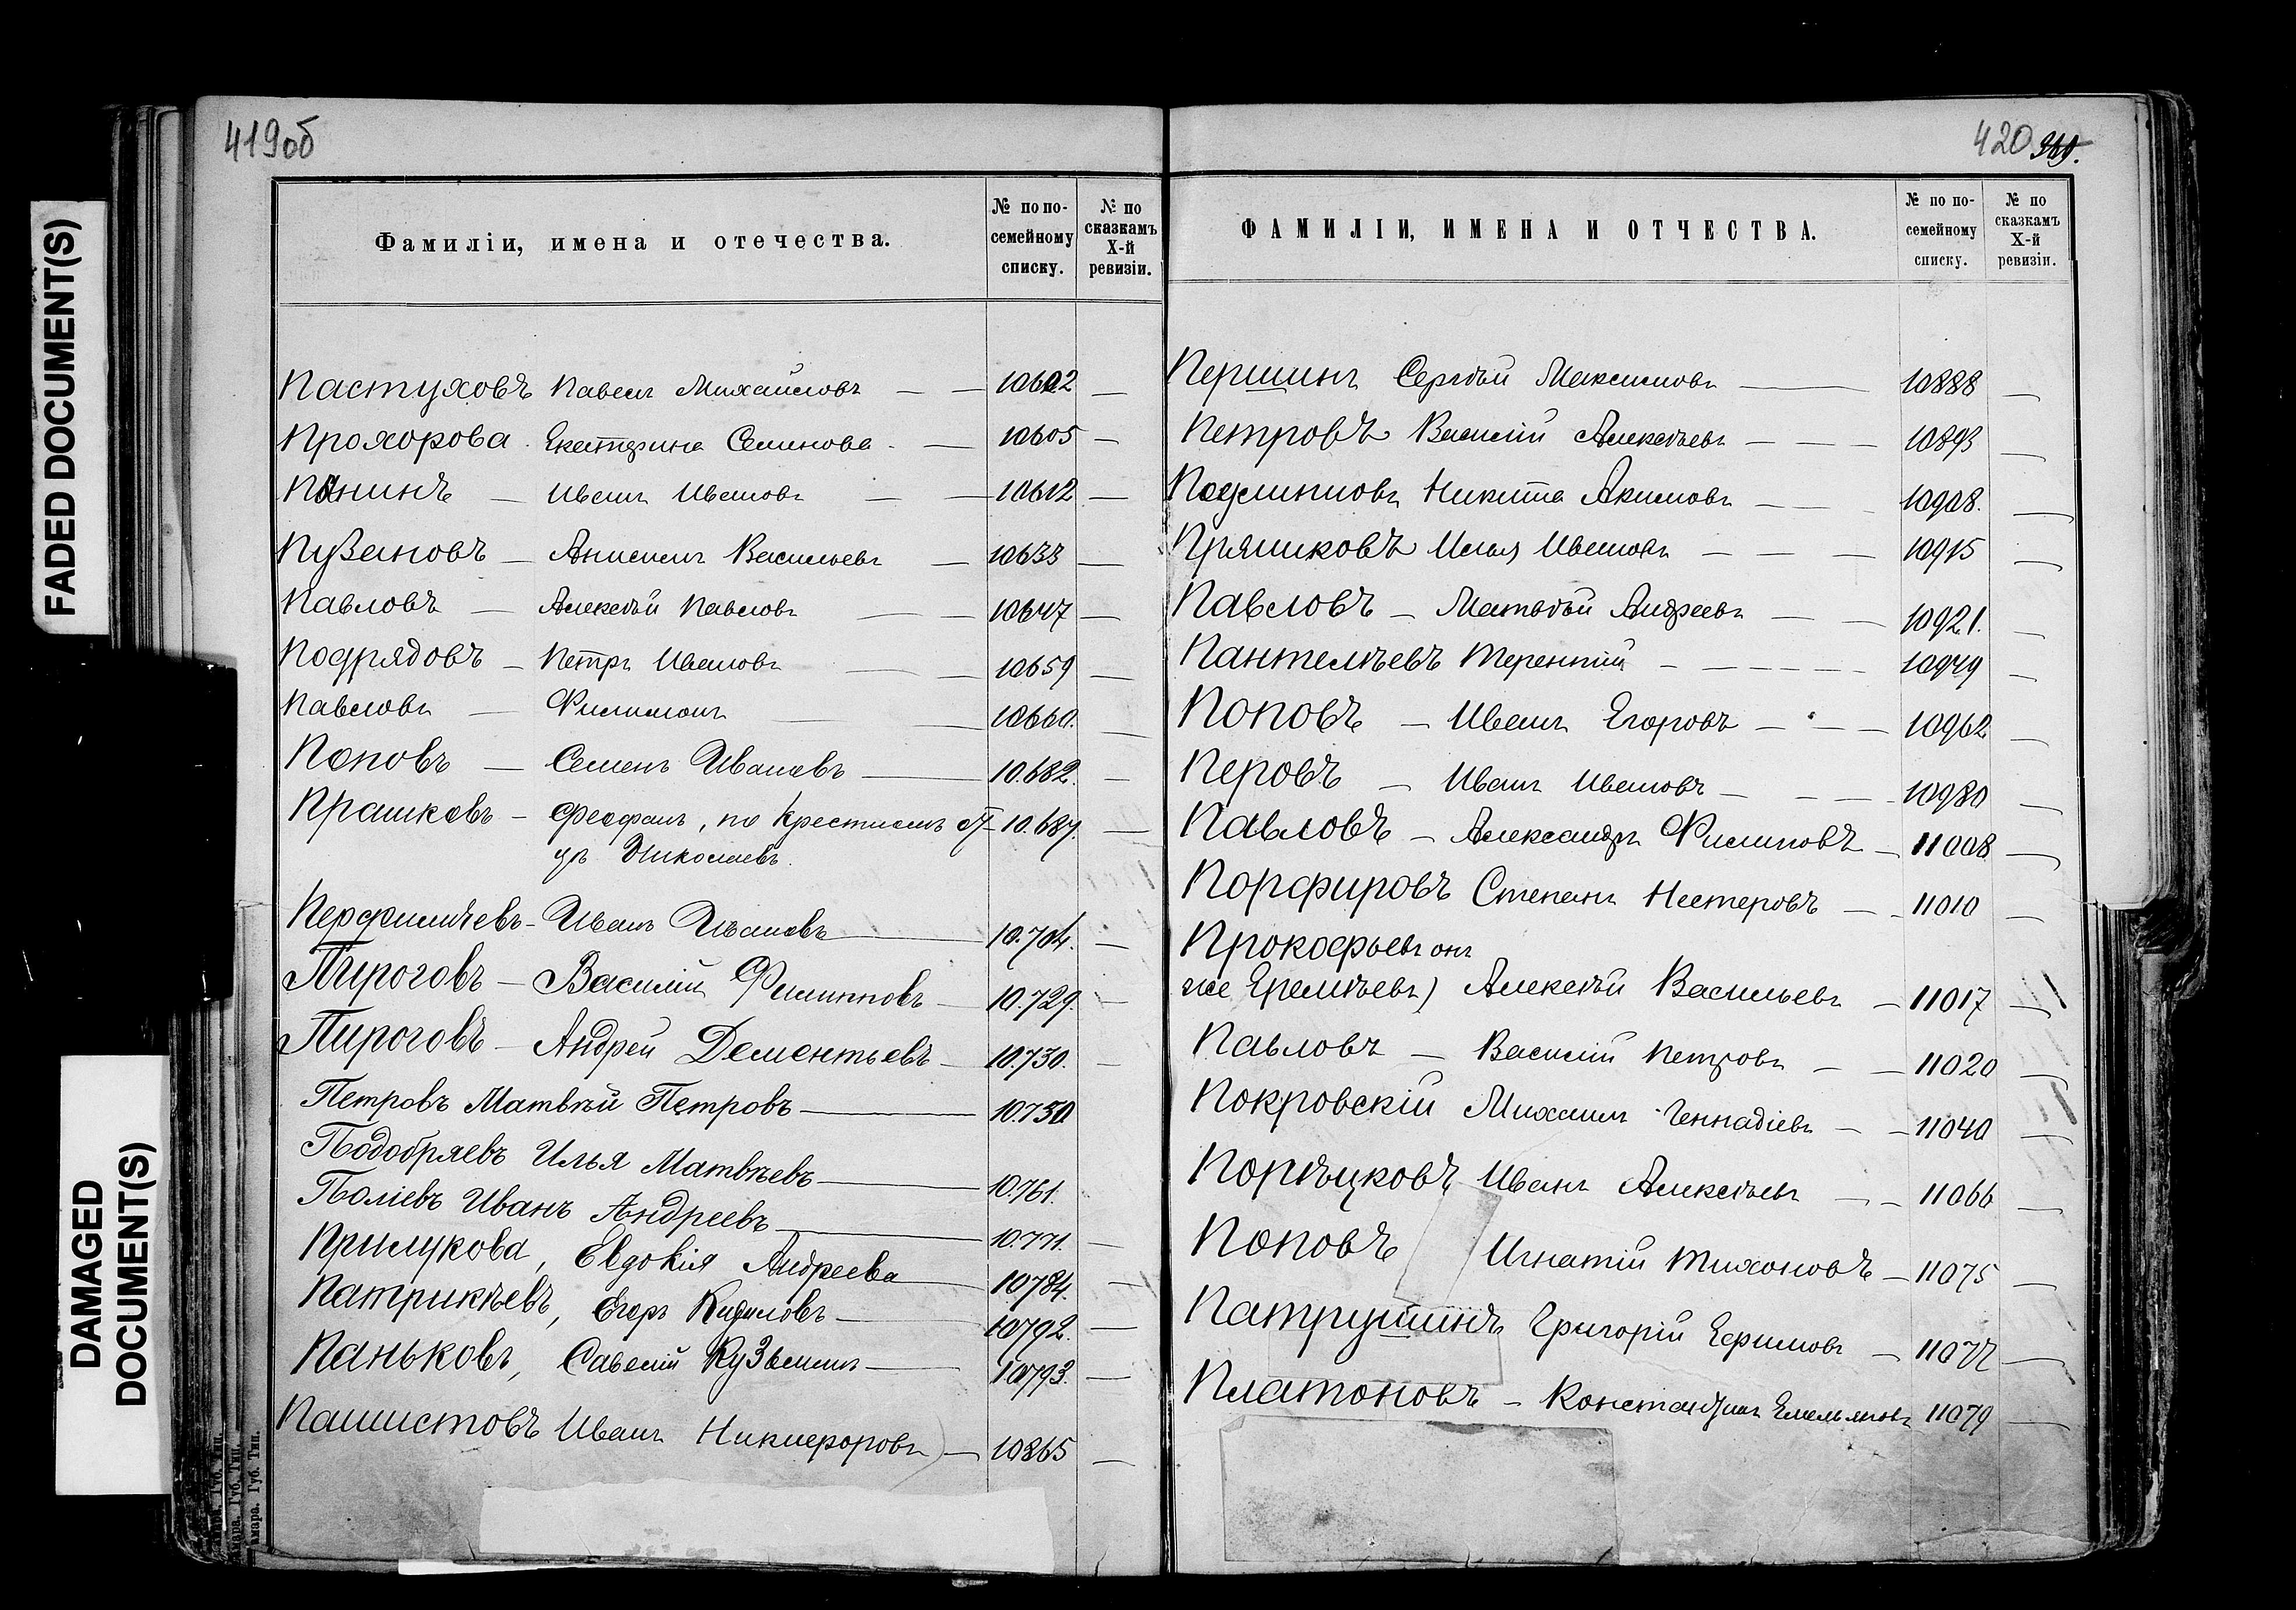 419об
Фамиліи, имена и отечества.
№ по по-
семейному
списку.
№ по
сказкамъ
X-й
ревизіи.
Пастуховъ Павелъ Михайловъ — — 10602 —
Прохорова. Екатерина Семинова - — 10605 —
Панинъ — Иванъ Ивановъ — — 10612 —
Пузановъ — Анисимъ Васильевъ — 10633 —
Павловъ — Алексѣй Павловъ — — 10647 —
Подрядовъ — Петръ Ивановъ — — 10659 —
Павловъ — Филимонъ — — 10660. —
Поповъ — Семенъ Ивановъ — 10.682. —
Прашковъ — Феофанъ, по крестнымъ 10.687. —
Николаевъ.
Перфильевъ - Иванъ Ивановъ — 10.704. —
Пироговъ — Василій Филипповъ — 10.729. —
Пироговъ — Андрей Дементьевъ — 10.730. —
Петровъ Матвѣй Петровъ — 10.750
Подобряевъ Илья Матвѣевъ — 10.761.
Поліевъ Иванъ Андреевъ — 10.771. —
Прилукова, Евдокія Андреева — 10784. —
Патрикѣевъ, Егоръ — 10792. —
Паньковъ, Савелій Кузьминъ — 10793. —
Пашистовъ Иванъ Никифоровъ — 10865 —
420 360.
ФАМИЛІИ, ИМЕНА И ОТЧЕСТВА.
№ по по-
семейному
списку.
№ по
сказкамъ
X-й
ревизіи.
Першинъ Сергѣй Максимовъ — 10888 —
Петровъ Василій Алексѣевъ — — — 10893 —
Подлипновъ Никита Акимовъ — — - 10908. —
Пряниковъ Илья Ивановъ — — — 10915 —
Павловъ — Матвѣй Андреевъ — — 10921. —
Пантелѣевъ Терентій — — — — 10949 —
Поповъ — Иванъ Егоровъ — - — 10962 —
Перовъ — Иванъ Ивановъ — — — 10980 —
Павловъ — Александръ Филиповъ — 11008 —
Порфировъ Степанъ Нестеровъ — - 11010 —
Прокофьевъ онъ
же Еремѣевъ) Алексѣй Васильевъ — 11017 —
Павловъ — Василій Петровъ — — 11020 —
Покровскій Михаилъ Геннадіевъ — — 11040 —
Порѣцковъ Иванъ Алексѣевъ — — 11066 —
Поповъ Игнатій Тихоновъ — 11075 —
Патрушинъ Григорій Ефимовъ — 11077 —
Платоновъ — Константинъ Емельяновъ 11079 —
FADED DOCUMENT(S)
DAMAGED
DOCUMENT(S)
Губ. Тип.
Губ. Тип.
Губ. Тип.